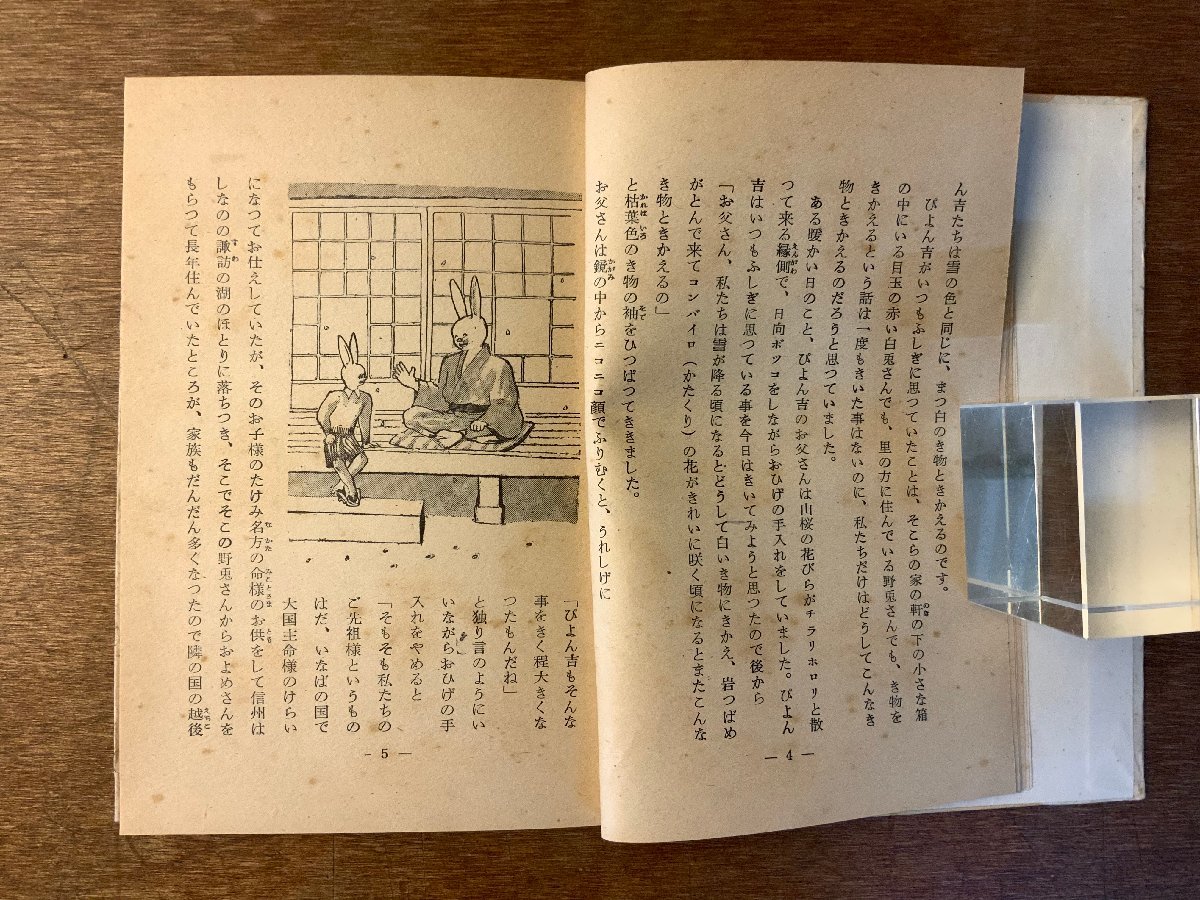 ん吉たちは雪の色と同じに、まつ白のき物ときかえるのです。
ぴよん吉がいつもふしぎに思つていたことは、そこらの家の軒の下の小さな箱
の中にいる目玉の赤い白兎さんでも、里の方に住んでいる野兎さんでも、き物を
きかえるという話は一度もきいた事はないのに、私たちだけはどうしてこんなき
物ときかえるのだろうと思つていました。
ある暖かい日のこと、ぴよん吉のお父さんは山桜の花びらがチラリホロリと散
つて来る縁側で、日向ボツコをしながらおひげの手入れをしていました。ぴよん
吉はいつもふしぎに思つている事を今日はきいてみようと思つたので後から
「お父さん、私たちは雪が降る頃になるとどうして白いき物にきかえ、岩つばめ
がとんで来てコンバイロ(かたくり)の花がきれいに咲く頃になるとまたこんな
き物ときかえるの」
と枯葉色のき物の袖をひつぱつてききました。
お父さんは鏡の中からニコニコ顔でふりむくと、うれしげに
— 4 —
「ぴよん吉もそんな
事をきく程大きくな
つたもんだね」
と独り言のようにい
いながらおひげの手
入れをやめると
「そもそも私たちの
ご先祖様というもの
はだ、いなばの国で
大国主命様のけらい
になつてお仕えしていたが、そのお子様のたけみ名方の命様のお供をして信州は
しなのの諏訪の湖のほとりに落ちつき、そこでそこの野兎さんからおよめさんを
もらつて長年住んでいたところが、家族もだんだん多くなつたので隣の国の越後
— 5 —